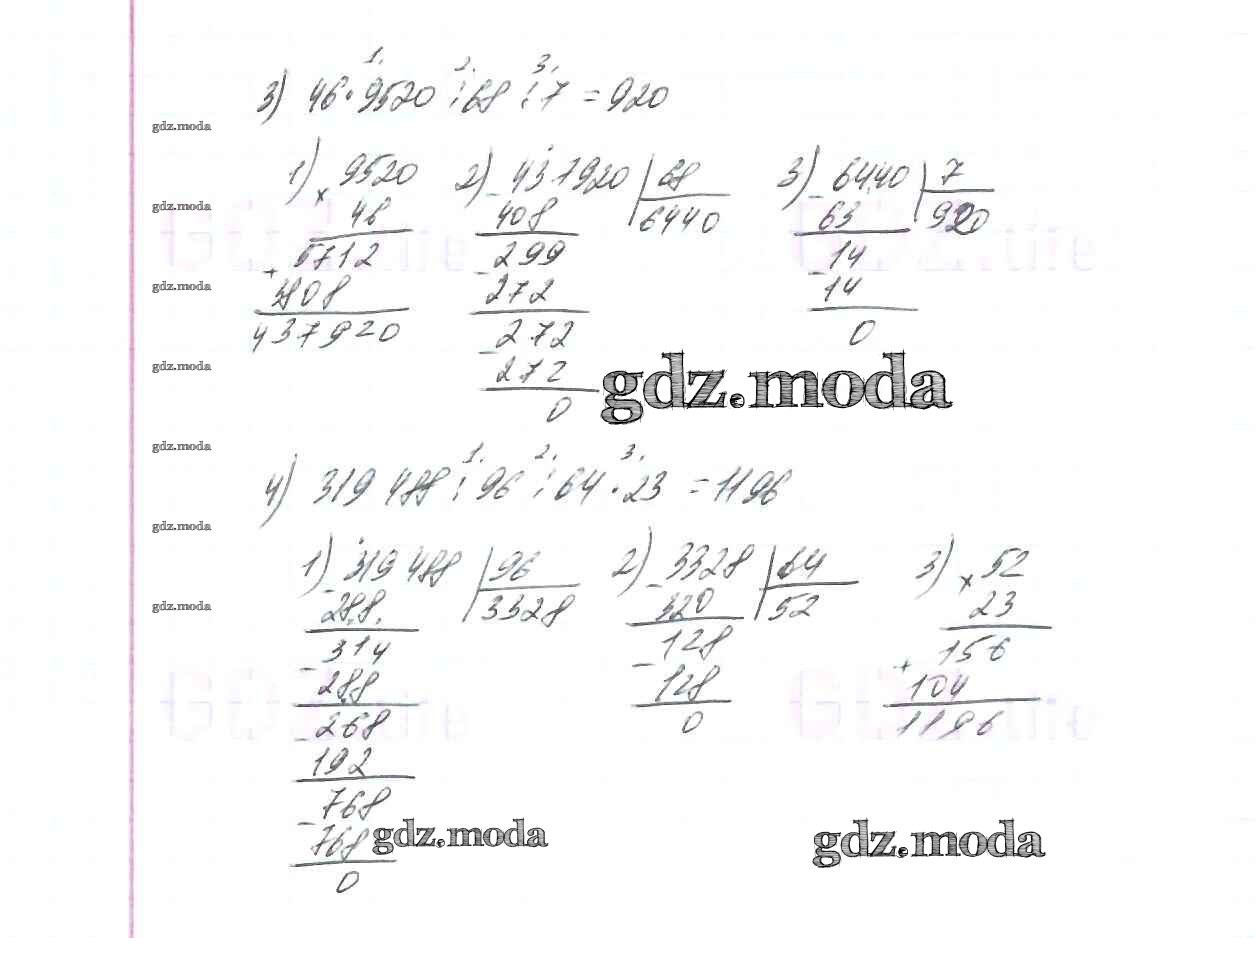 1. 2. 3.
3) 46 · 9520 : 68 : 7 = 920
gdz.moda
1) × 9520
46
+ 5712
3808
437920
2) - 437920 | 68
408 6440
- 299
272
- 272
272
0
3) - 6440 | 7
63 920
- 14
14
0
gdz.moda
gdz.moda
gdz.moda
gdz.moda
gdz.moda
1. 2. 3.
4) 319 488 : 96 : 64 · 23 = 1196
gdz.moda
1) - 319 488 | 96
288 3328
- 314
288
- 268
192
- 768
768
0
2) - 3328 | 64
320 52
- 128
128
0
3) × 52
23
+ 156
104
1196
gdz.moda
gdz.moda
gdz.moda